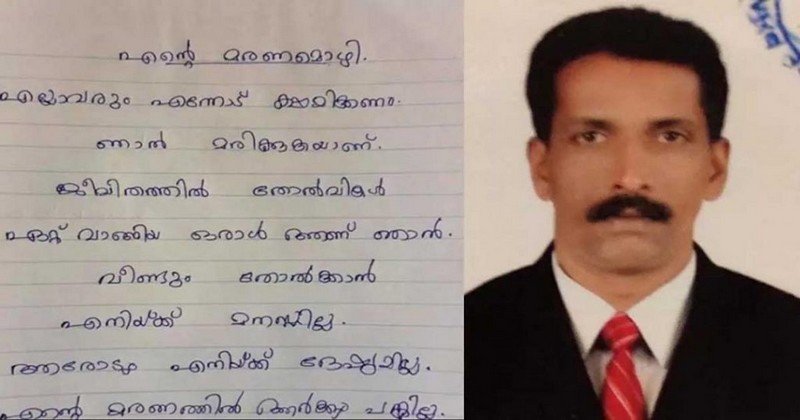 എന്റെ മരണമൊഴി.
എല്ലാവരും എന്നോട് ക്ഷമിക്കണം.
ഞാൻ മരിക്കുകയാണ്.
ജീവിതത്തിൽ തോൽവികൾ
ഏറ്റ് വാങ്ങിയ ഒരാൾ ആണ് ഞാൻ.
വീണ്ടും തോൽക്കാൻ
എനിയ്ക്ക് മനസ്സില്ല.
ആരോടും എനിയ്ക്ക് ദേഷ്യമില്ല.
എന്റെ മരണത്തിൽ ആർക്കും പങ്കില്ല.